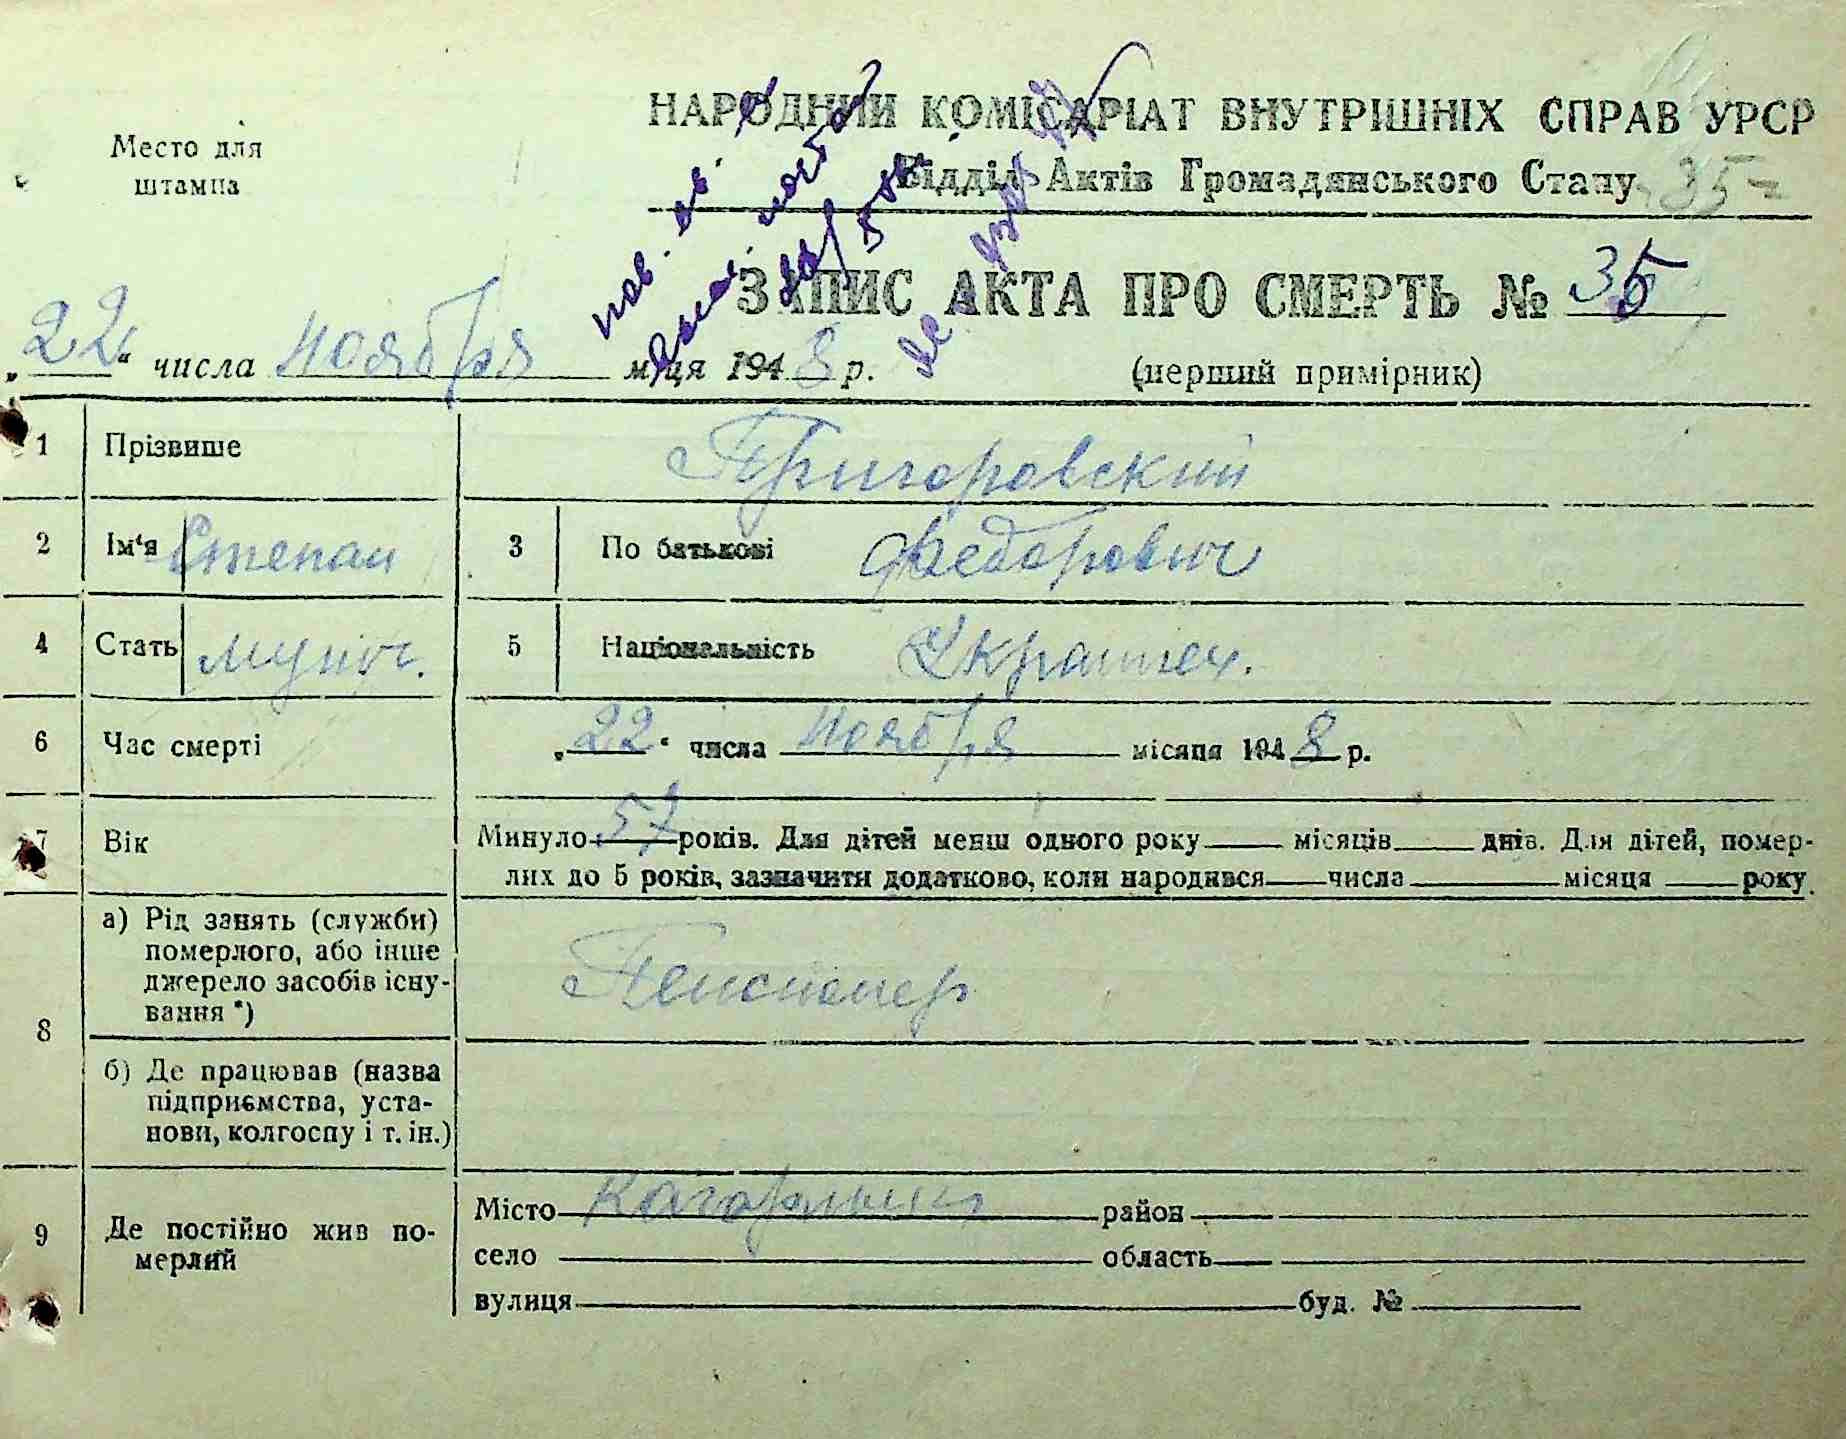 Место для
штампа
НАРОДНИЙ КОМІСАРІАТ ВНУТРІШНІХ СПРАВ УРСР
Відділ Актів Громадянського Стану 35
ЗАПИС АКТА ПРО СМЕРТЬ № 35
„22“ числа ноября м-ця 1948 р. (перший примірник)
1 Прізвище Григоровский
2 Ім‘я Степан 3 По батькові Федорович
4 Стать мужч. 5 Національність Украинец.
6 Час смерті „22“ числа ноября місяця 1948 р.
7 Вік Минуло 57 років. Для дітей менш одного року місяців днів. Для дітей, помер-
лих до 5 років, зазначити додатково, коли народився числа місяця року.
8 а) Рід занять (служби)
померлого, або інше
джерело засобів існу-
вання *) Пенсионер
б) Де працював (назва
підприємства, уста-
нови, колгоспу і т. ін.)
9 Де постійно жив по-
мерлий
Місто Кагарлык район
село область
вулиця буд. №